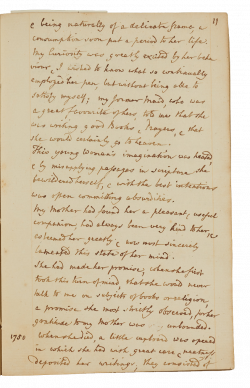 11
& being naturally of a delicate frame a
consumption soon put a period to her life.
My curiosity was greatly excited by her beha
viour, & I wished to know what so continually
employed her pen, but without being able to
satisfy myself; my former maid, who was
a great favourite of hers, told me that she
was writing good Books, & Prayers, & that
she would certainly go to heaven.
This young Woman's imagination was heated
& by misapplying passages in scripture she
bewildered herself, & with the best intentions
was upon committing absurdities.
My mother had found her a pleasant, useful
companion, had always been very kind to her,
esteemed her greatly, & now most sincerely
lamented this state of her mind.
She had made her promise, when she first
took this turn of mind, that she would never
talk to me on subjects of books or religion,
a promise she most strictly observed, for her
gratitude to my Mother was unbounded.
1750 When she died, a little cupboard was opened
in which she had with great care & neatness
deposited her writings, they consisted of